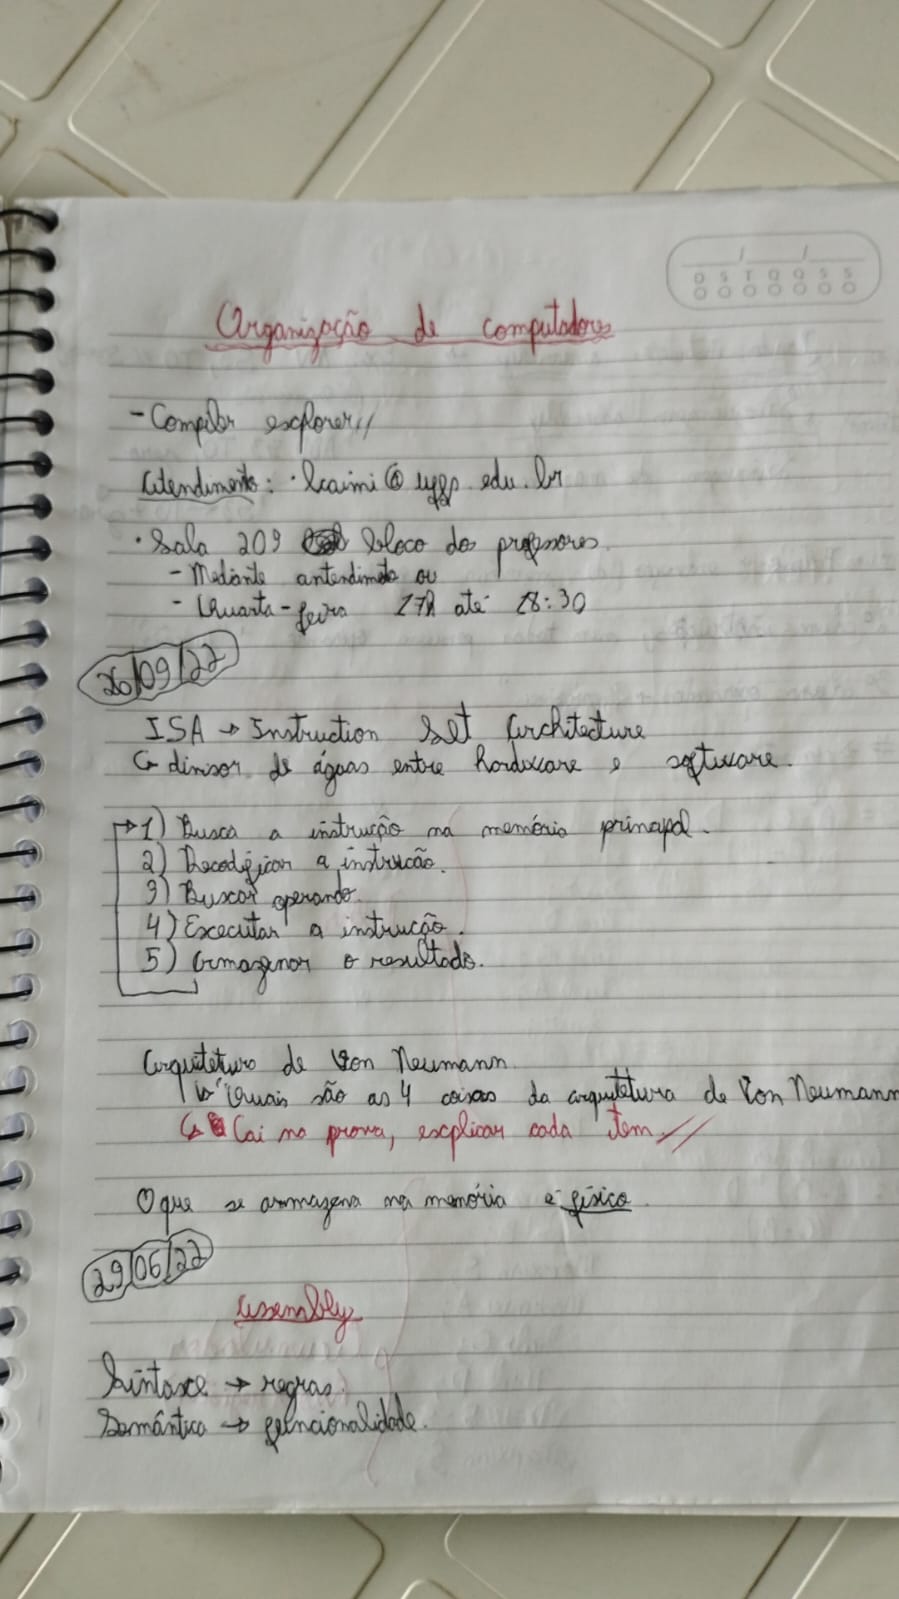 D S T Q Q S S
Organização de computadores
- Compiler explorer //
Atendimento: · lcaimi@uffs.edu.br
· Sala 209 bloco dos professores
- Mediante antendimento ou
- Quarta-feira 17h até 18:30
26/09/22
ISA → Instruction Set Architecture
↳ divisor de águas entre hardware e software.
→ 1) Busca a instrução na memória principal.
2) Decodificar a instrução.
3) Buscar operando.
4) Executar a instrução.
5) Armazenar o resultado.
Arquitetura de Von Neumann.
↳ Quais são as 4 coisas da arquitetura de Von Neumann
↳ Cai na prova, explicar cada item //
O que se armazena na memória é físico.
29/06/22
Assembly
Sintaxe → regras.
Semântica → funcionalidade.